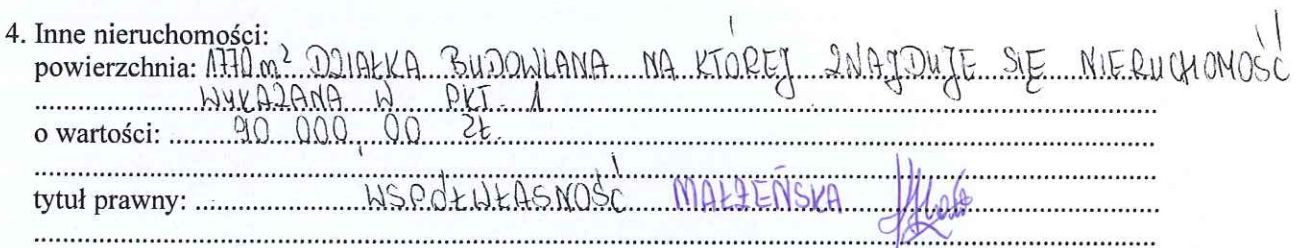 4. Inne nieruchomości:
powierzchnia: 1770 m² DZIAŁKA BUDOWLANA NA KTÓREJ ZNAJDUJE SIĘ NIERUCHOMOŚĆ
WYKAZANA W PKT. 1
o wartości: 90 000,00 ZŁ.
tytuł prawny: WSPÓŁWŁASNOŚĆ MAŁŻEŃSKA